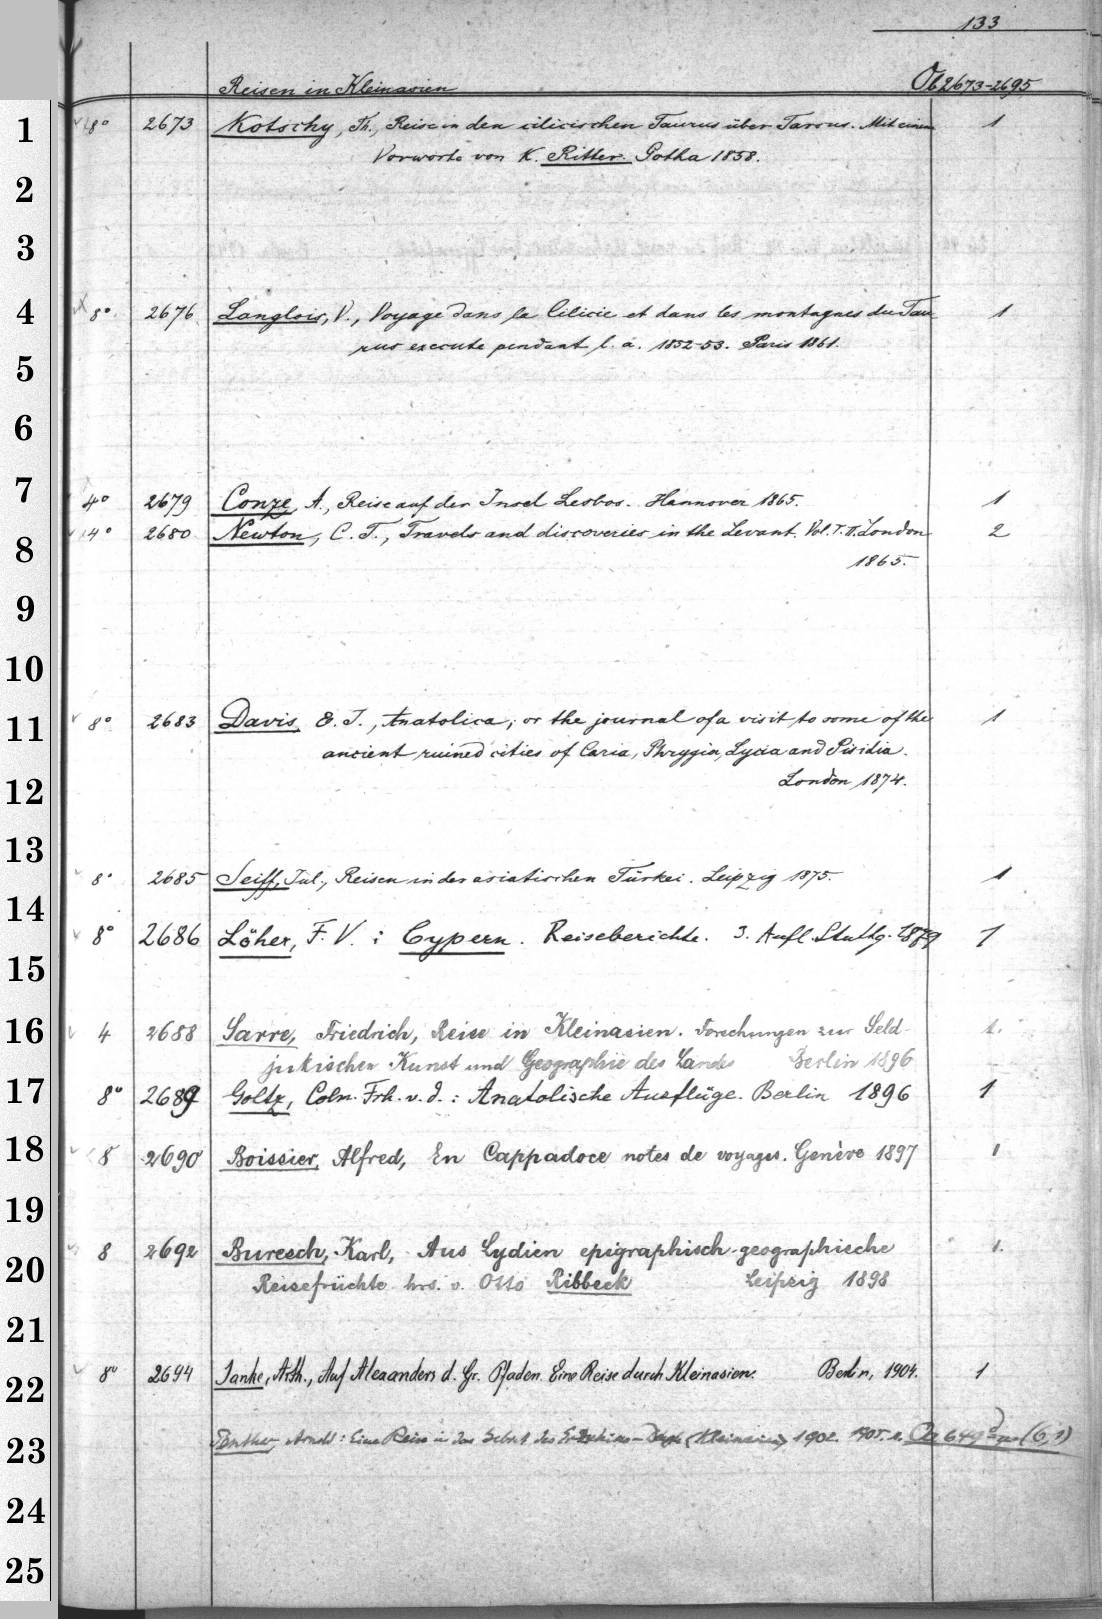 133
Reisen in Kleinasien Ob 2673-2695
1 8° 2673 Kotschy, Th., Reise in den cilicischen Taurus über Tarsus. Mit einem 1
Vorworte von K. Ritter. Gotha 1858.
2
3
4 8° 2676 Langlois, V., Voyage dans la Cilicie et dans les montagnes du Tau 1
rus execute pendant l. a. 1852-53. Paris 1861.
5
6
7 4° 2679 Conze, A., Reise auf der Insel Lesbos. Hannover 1865. 1
8 4° 2680 Newton, C. T., Travels and discoveries in the Levant. Vol. I. II. London 2
1865.
9
10
11 8° 2683 Davis, E. J., Anatolica; or the journal of a visit to some of the 1
ancient ruined cities of Caria, Phrygia, Lycia and Pisidia.
12 London 1874.
13 8° 2685 Seiff, Jul., Reisen in der asiatischen Türkei. Leipzig 1875. 1
14 8° 2686 Löher, F. V. : Cypern. Reiseberichte. 3. Aufl. Stuttg. 1879 1
15
16 4 2688 Sarre, Friedrich, Reise in Kleinasien. Forschungen zur Seld- 1.
jukischen Kunst und Geographie des Landes Berlin 1896
17 8° 2689 Goltz, Colm. Frh. v. d. : Anatolische Ausflüge. Berlin 1896 1
18 8 2690 Boissier, Alfred, En Cappadoce notes de voyages. Genève 1897 1
19
20 8 2692 Buresch, Karl, Aus Lydien epigraphisch-geographische 1.
Reisefrüchte hrs. v. Otto Ribbeck Leipzig 1898
21
22 8° 2694 Janke, Arth., Auf Alexanders d. Gr. Pfaden. Eine Reise durch Kleinasien. Berlin, 1904. 1
23 Penther, Arnold: Eine Reise in das Gebiet des Erdschias-Dagh (Kleinasien) 1902. 1905. s. 649 (6,1)
24
25